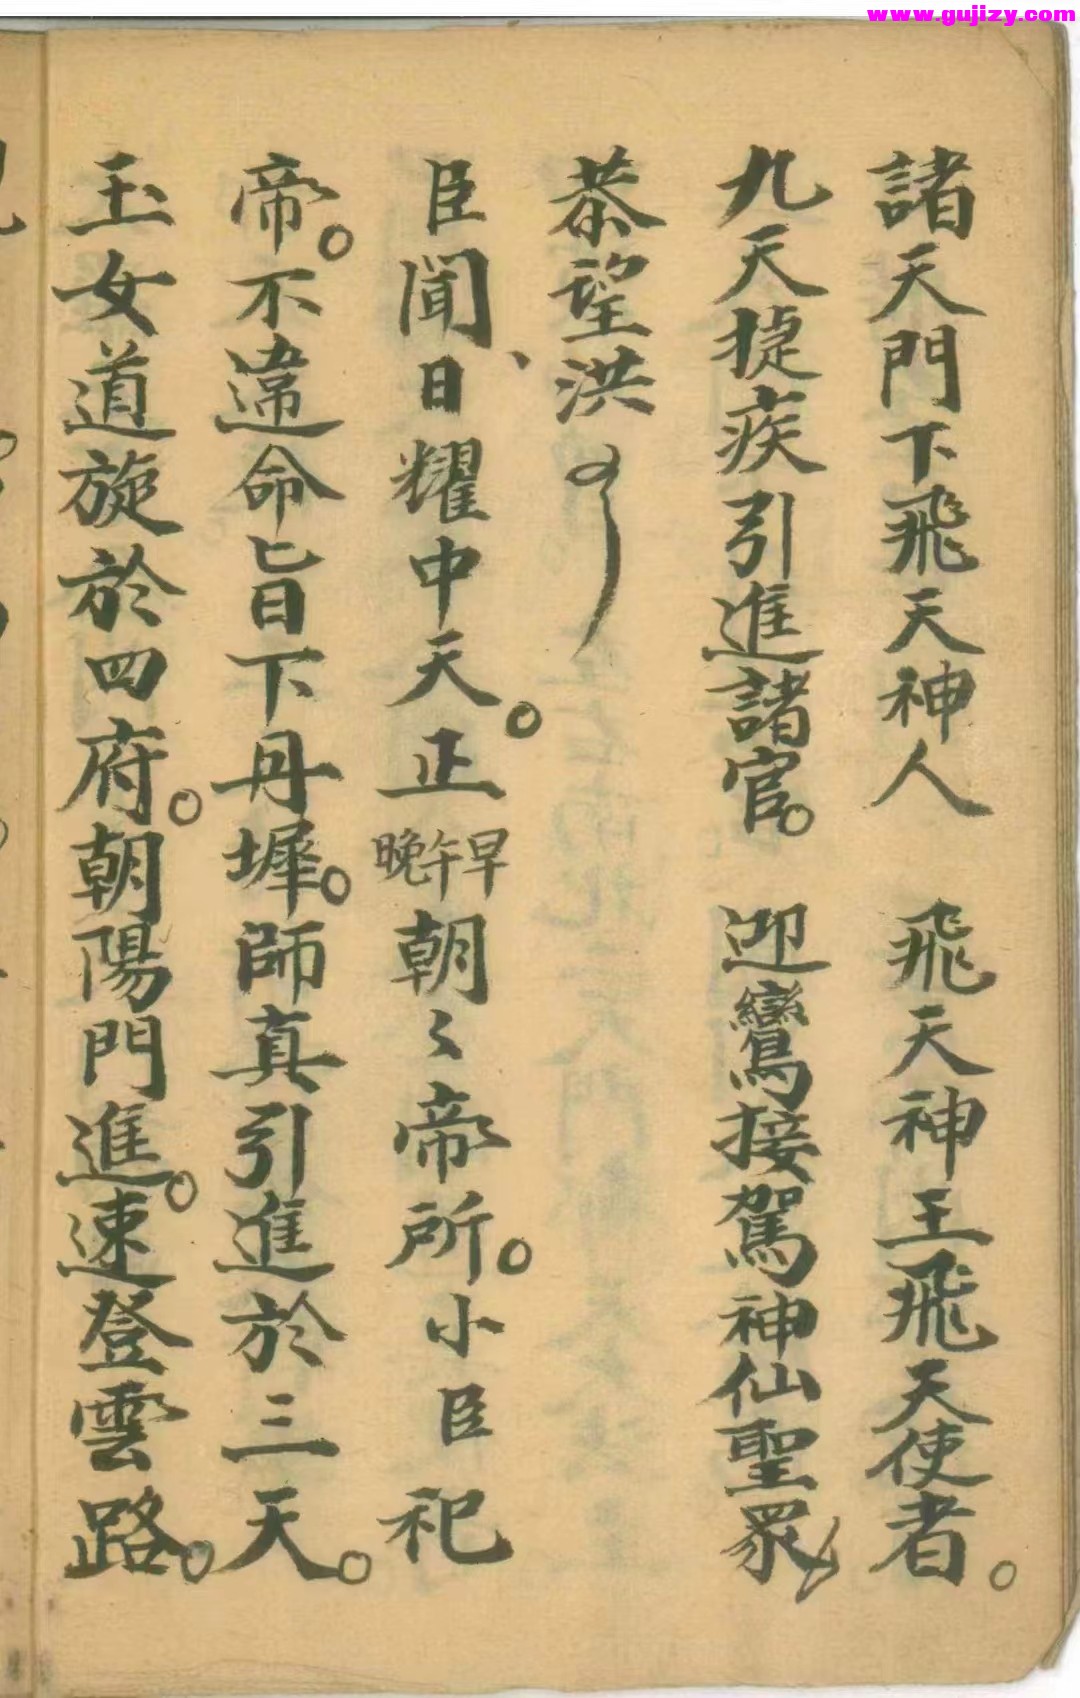 www.gujizy.com
諸天門下飛天神人 飛天神王飛天使者。
九天捷疾引進諸官。 迎鸞接駕神仙聖眾
恭望洪
臣聞、日耀中天。正早午晚朝〻帝所。小臣祀
帝。不違命旨下丹墀。師真引進於三天。
玉女道旋於四府。朝陽門進。速登雲路。